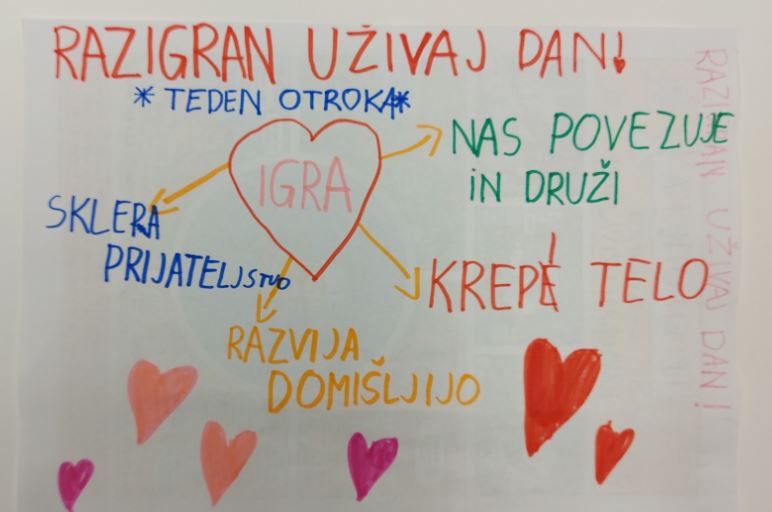 RAZIGRAN UŽIVAJ DAN!
* TEDEN OTROKA*
IGRA
NAS POVEZUJE
IN DRUŽI
SKLERA
PRIJATELJSTVO
KREPI TELO
RAZVIJA
DOMIŠLJIJO
RAZIGRAN UŽIVAJ DAN!